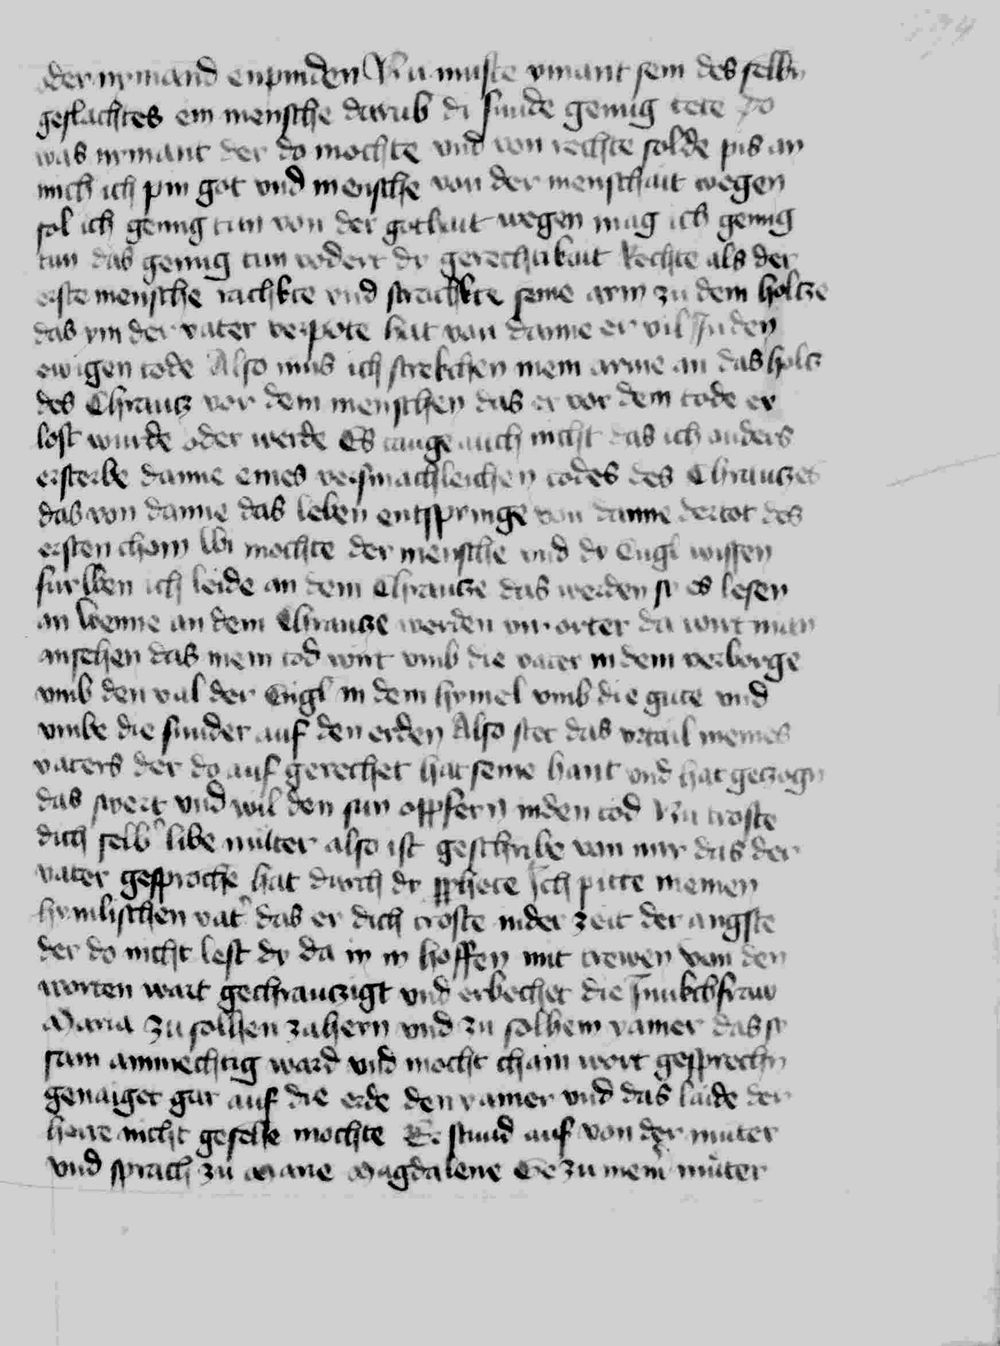 der nymand enpinden Nu muste ymant sein des selbn
geslachtes ein mensche darub di sunde genug tete Do
was nymant der do mochte vnd von rechte solde pis an
mich ich pin got vnd mensche von der menschait wegen
sol ich genug tun von der gothait wegen mag ich genug
tun das genug tun vodert dy gerechtikait Rechte als der
erste mensche rachkte vnd strachkte seine arm zu dem holtze
das ym der vater verpote hat von danne er vil In den
ewigen tode Also mus ich strekchen mein arme an das holtz
des Chrautz vor dem menschen das er vor dem tode er
lost wurde oder werde Es tauge auch nicht das ich anders
ersterbe danne eines versmachleichen todes des Chrautzes
das von danne das leben entspringe von danne der tot des
ersten chom Wi mochte der mensche vnd dy Engl wissen
fur wen ich leide an dem Chrautze das werden sy es lesen
an wenne an dem Chrautze werden vir orter da wirt man
ansehen das mein tod wirt vmb die vater in dem verborge
vmb den val der Engl in dem hymel vmb die gute vnd
vmbe die sunder auf den erden Also stet das vrtail meines
vaters der do auf gerechet hat seine hant vnd hat getzogn
das swert vnd wil den sun oppfern in den tod Nu troste
dich selb libe muter also ist geschribe von mir das der
vater gesproche hat durch dy pphete Ich pitte meinen
hymlischen vat das er dich troste in der zeit der angste
der do nicht lest dy da in in hoffen mit trewen von den
worten wart gechrautzigt vnd erbechet die Junkchfraw
Maria zu solhen zahern vnd zu solhem yamer das sy
sam ammechtig ward vnd mocht chain wort gesprechn
genaiget gar auf die erde den yamer vnd das laide der
herre nicht gesehe mochte Er stund auf von der muter
vnd sprach zu Marie Magdalene Ge zu meinr muter